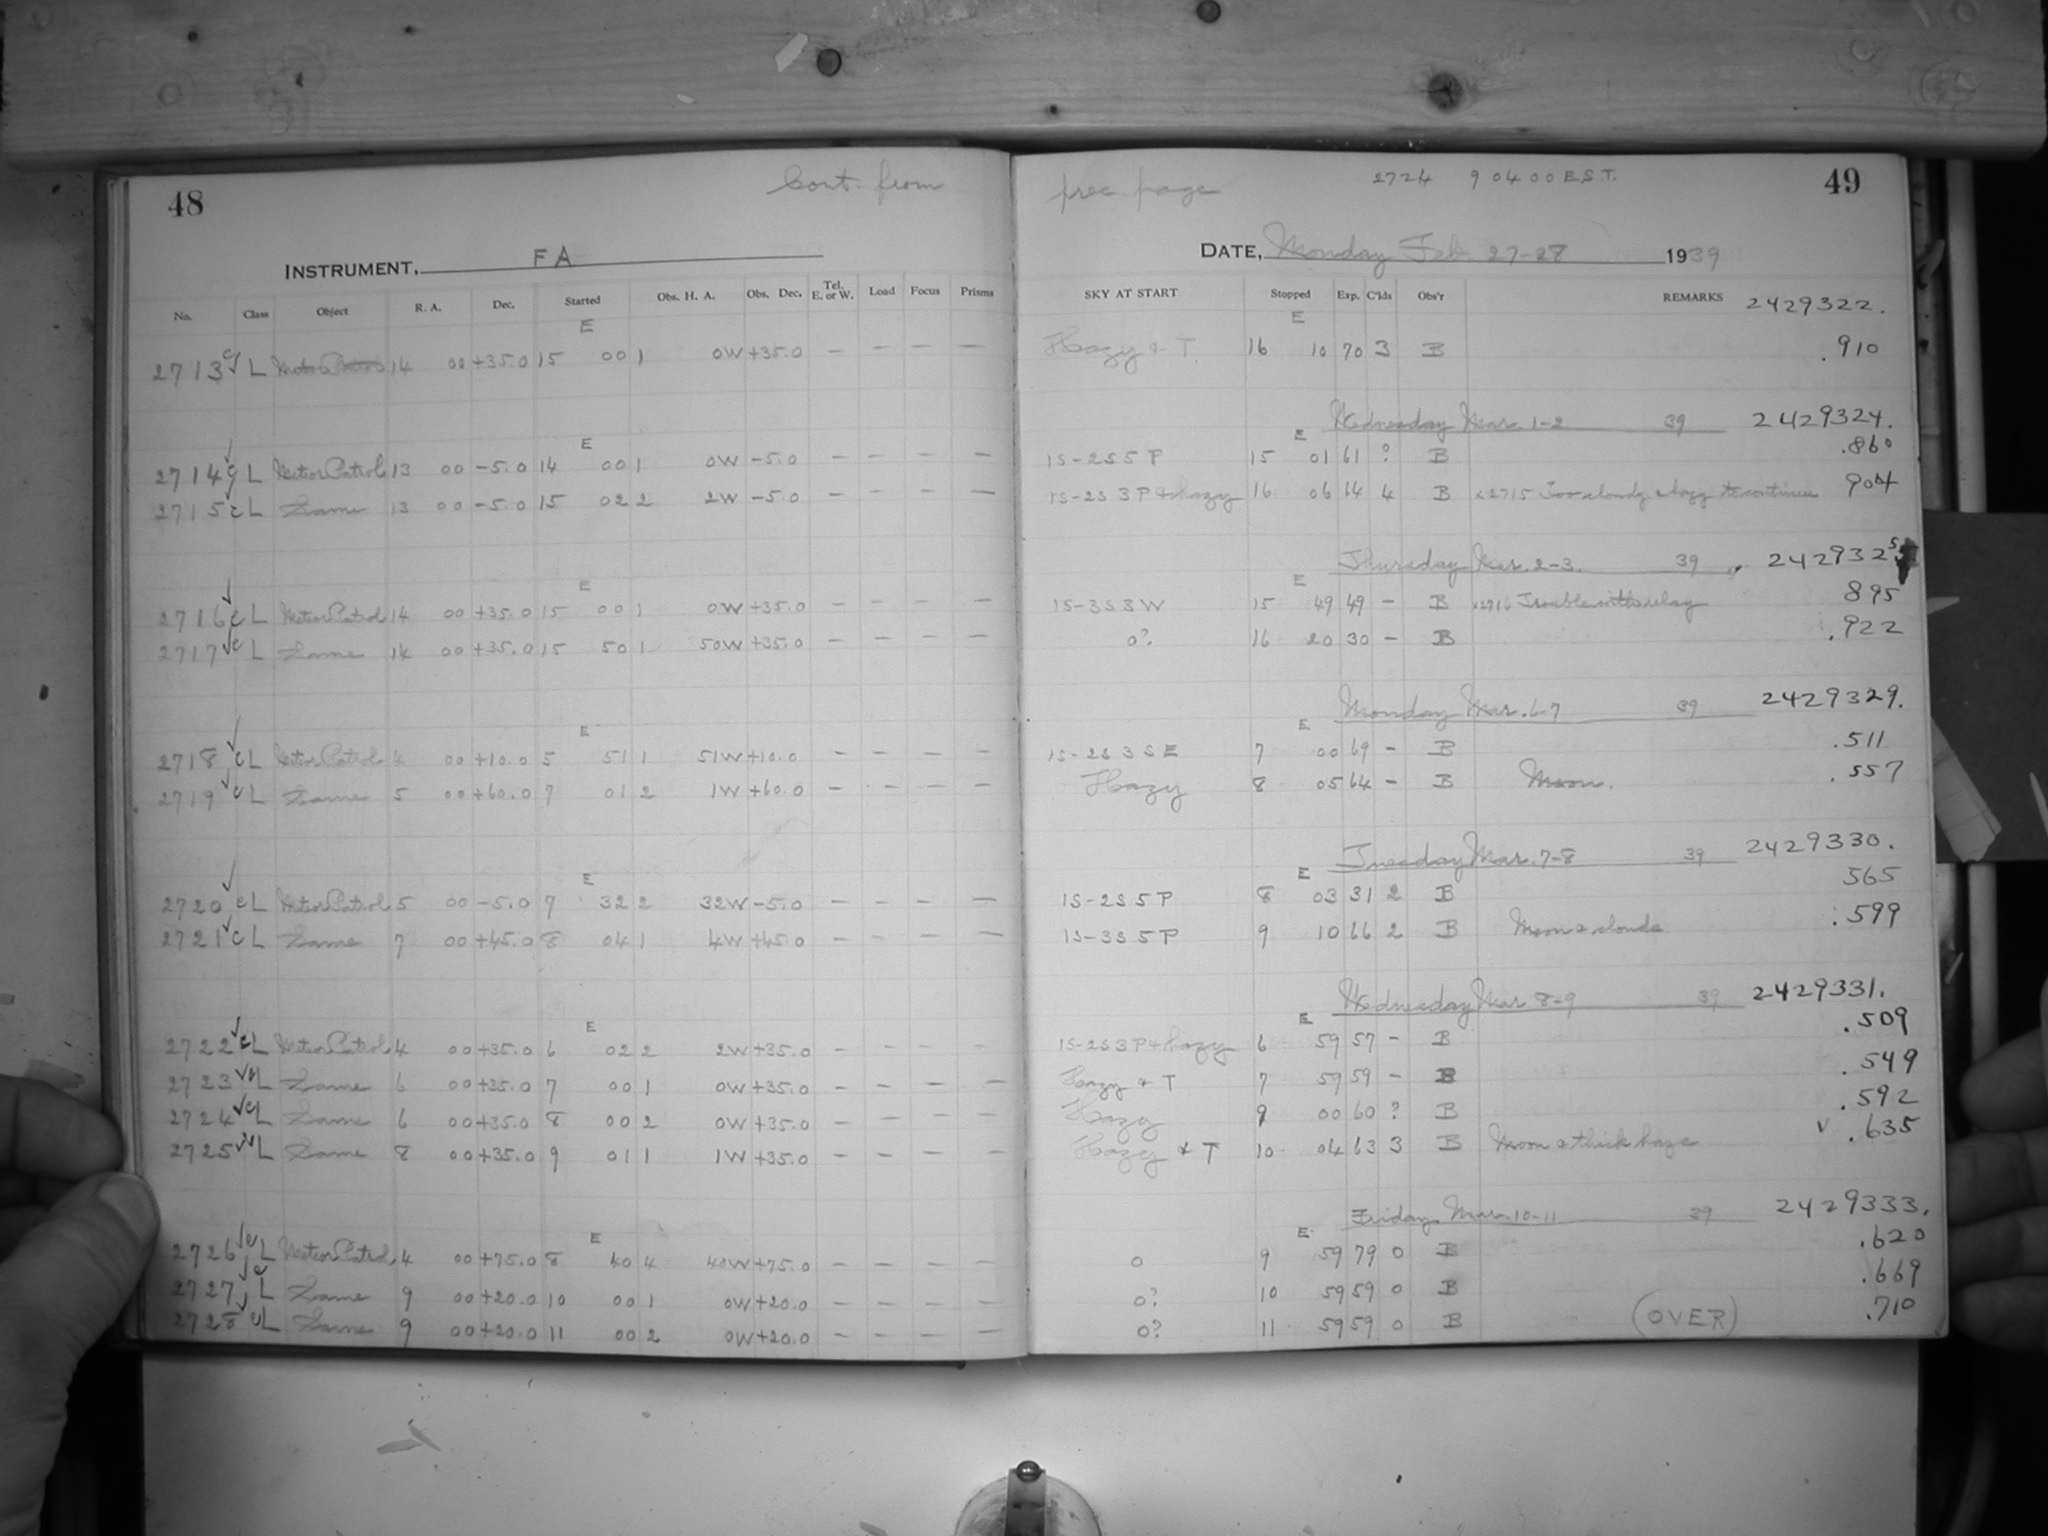 48 Cont. from prec. page 2724 9 04 00 E.S.T. 49
INSTRUMENT, FA DATE, Monday Feb. 27-28 1939
No. Class Object R. A. Dec. Started Obs. H. A. Obs. Dec. Tel. E. or W. Load Focus Prisms SKY AT START Stopped Exp. C'lds Obs'r REMARKS 2429322.
E E
2713 L Meteor Patrol 14 00 +35.0 15 00 1 0W +35.0 — — — — Hazy & T. 16 10 70 3 B .910
Wednesday Mar. 1-2 39 2429324.
E E
2714 L Meteor Patrol 13 00 -5.0 14 00 1 0W -5.0 — — — — 1S-2S 5 P 15 01 61 ? B .860
2715 c L Same 13 00 -5.0 15 02 2 2W -5.0 — — — — 1S-2S 3 P + hazy 16 06 64 4 B x2715 Too cloudy & hazy to continue 904
Thursday Mar. 2-3. 39 2429325.
E E
2716 c L Meteor Patrol 14 00 +35.0 15 00 1 0W +35.0 — — — — 1S-3S 3 W 15 49 49 — B x2716 Trouble with relay 895
2717 c L Same 14 00 +35.0 15 50 1 50W +35.0 — — — — 0? 16 20 30 — B .922
Monday Mar. 6-7 39 2429329.
E E
2718 c L Meteor Patrol 4 00 +10.0 5 51 1 51W +10.0 — — — — 1S-2S 3 S E 7 00 69 — B .511
2719 c L Same 5 00 +60.0 7 01 2 1W +60.0 — — — — Hazy 8 05 64 — B Moon. .557
Tuesday Mar. 7-8 39 2429330.
E E
2720 c L Meteor Patrol 5 00 -5.0 7 32 2 32W -5.0 — — — — 1S-2S 5 P 8 03 31 2 B 565
2721 c L Same 7 00 +45.0 8 04 1 4W +45.0 — — — — 1S-3S 5 P 9 10 66 2 B Moon & clouds .599
Wednesday Mar. 8-9 39 2429331.
E E
2722 c L Meteor Patrol 4 00 +35.0 6 02 2 2W +35.0 — — — — 1S-2S 3 P + hazy 6 59 57 — B .509
2723 L Same 6 00 +35.0 7 00 1 0W +35.0 — — — — Hazy & T 7 59 59 — B .549
2724 c L Same 6 00 +35.0 8 00 2 0W +35.0 — — — — Hazy 9 00 60 ? B .592
2725 L Same 8 00 +35.0 9 01 1 1W +35.0 — — — — Hazy & T 10 04 63 3 B Moon & thick haze .635
Friday Mar. 10-11 39 2429333.
E E
2726 c L Meteor Patrol 4 00 +75.0 8 40 4 40W +75.0 — — — — 0 9 59 79 0 B .620
2727 c L Same 9 00 +20.0 10 00 1 0W +20.0 — — — — 0? 10 59 59 0 B .669
2728 c L Same 9 00 +20.0 11 00 2 0W +20.0 — — — — 0? 11 59 59 0 B (OVER) .710